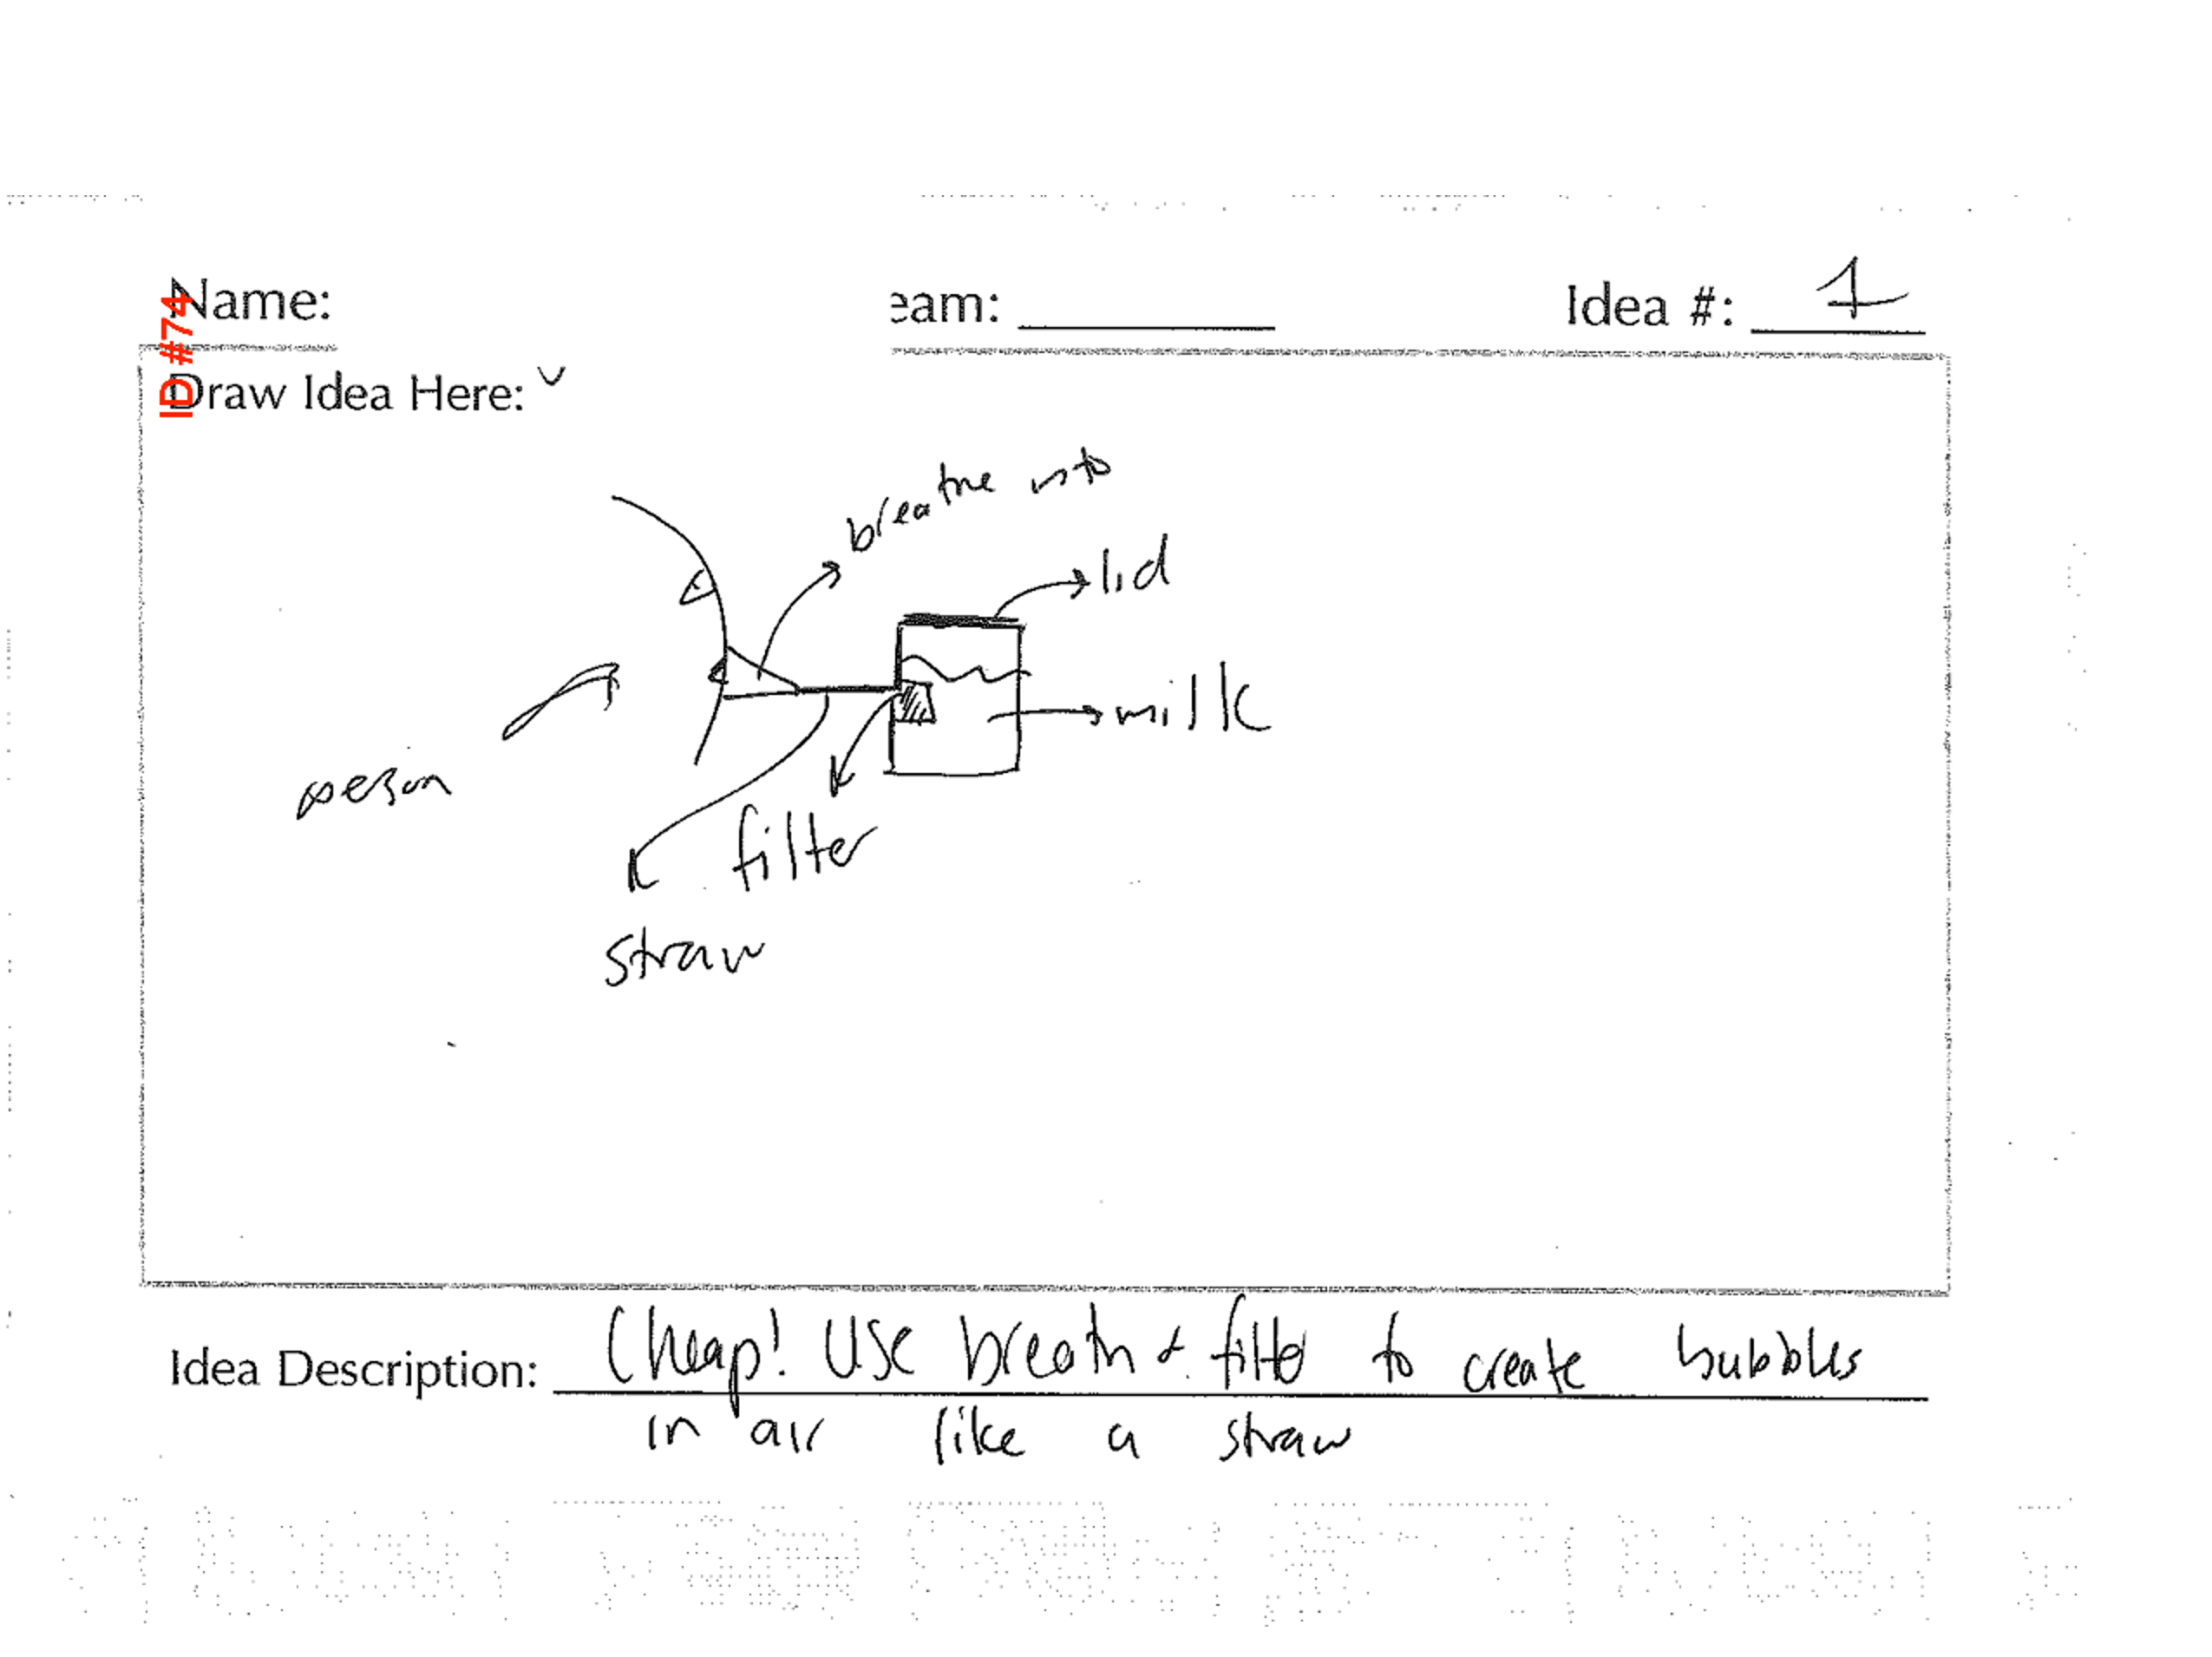 Name:
eam:
Idea #: 1
ID #74
Draw Idea Here:
breathe into
lid
milk
person
filter
straw
Idea Description: Cheap! Use breath & filter to create bubbles
in air like a straw